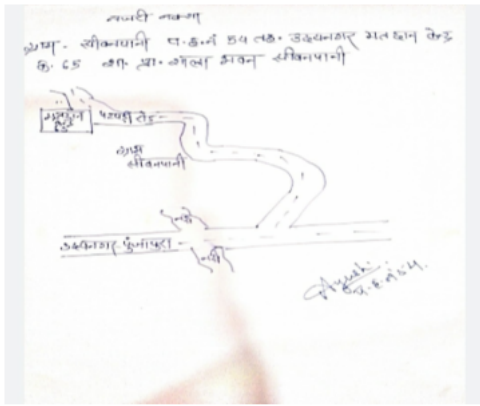 नजरी नक्शा
ग्राम - सीवनपानी प.ह.नं 54 तह. उदयनगर मतदान केन्द्र
क्र. 65 शा. प्रा. शाला भवन सीवनपानी
मतदान केन्द्र
पहुंच रोड
ग्राम सीवनपानी
नदी
उदयनगर - पुंजापुरा
नदी
प.ह.नं 54